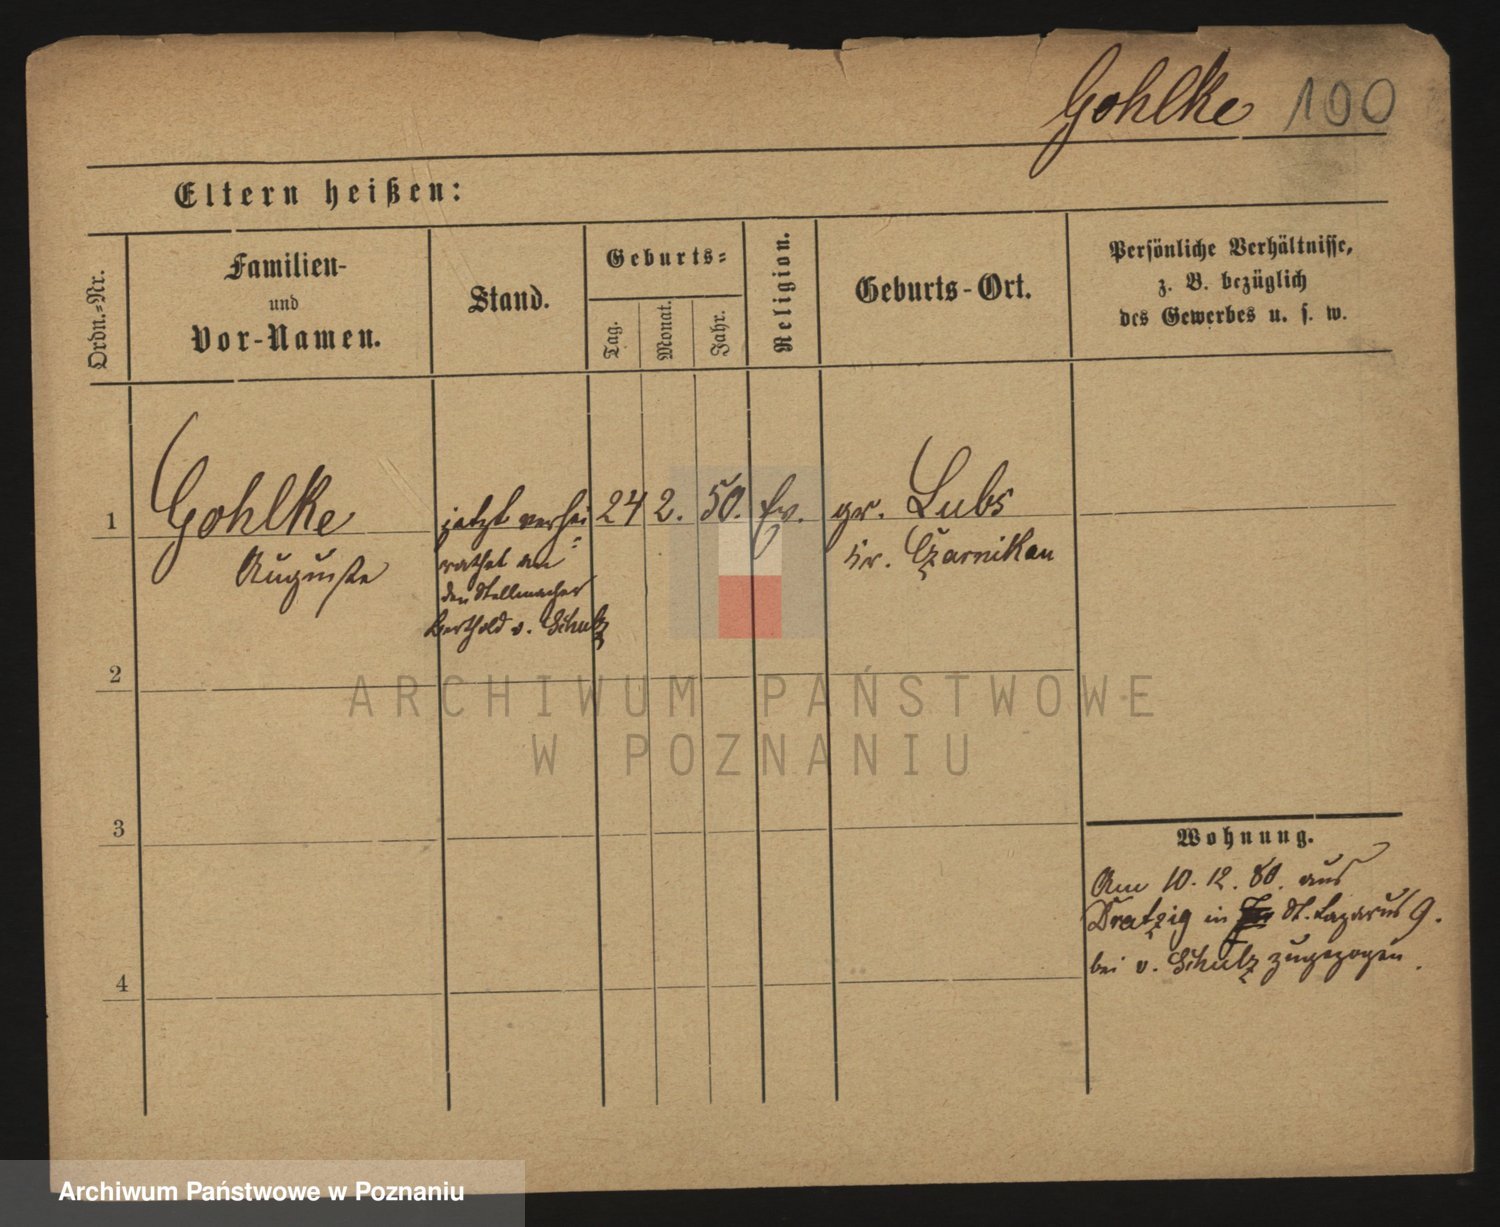 Gohlke 100
Eltern heißen:
Ordn.-Nr.
Familien-
und
Vor-Namen.
Stand.
Geburts-
Tag.
Monat.
Jahr.
Religion.
Geburts-Ort.
Persönliche Verhältnisse,
z. B. bezüglich
des Gewerbes u. s. w.
1 Gohlke jetzt verhei 24 2. 50. Ev. gr. Lubs
Auguste rathet an Kr. Czarnikau
den Stellmacher
Berthold v. Schulz
2
ARCHIWUM PAŃSTWOWE
W POZNANIU
3
Wohnung.
Am 10. 12. 80. aus
Dratzig in St. Lazarus 9.
bei v. Schulz zugezogen.
4
Archiwum Państwowe w Poznaniu